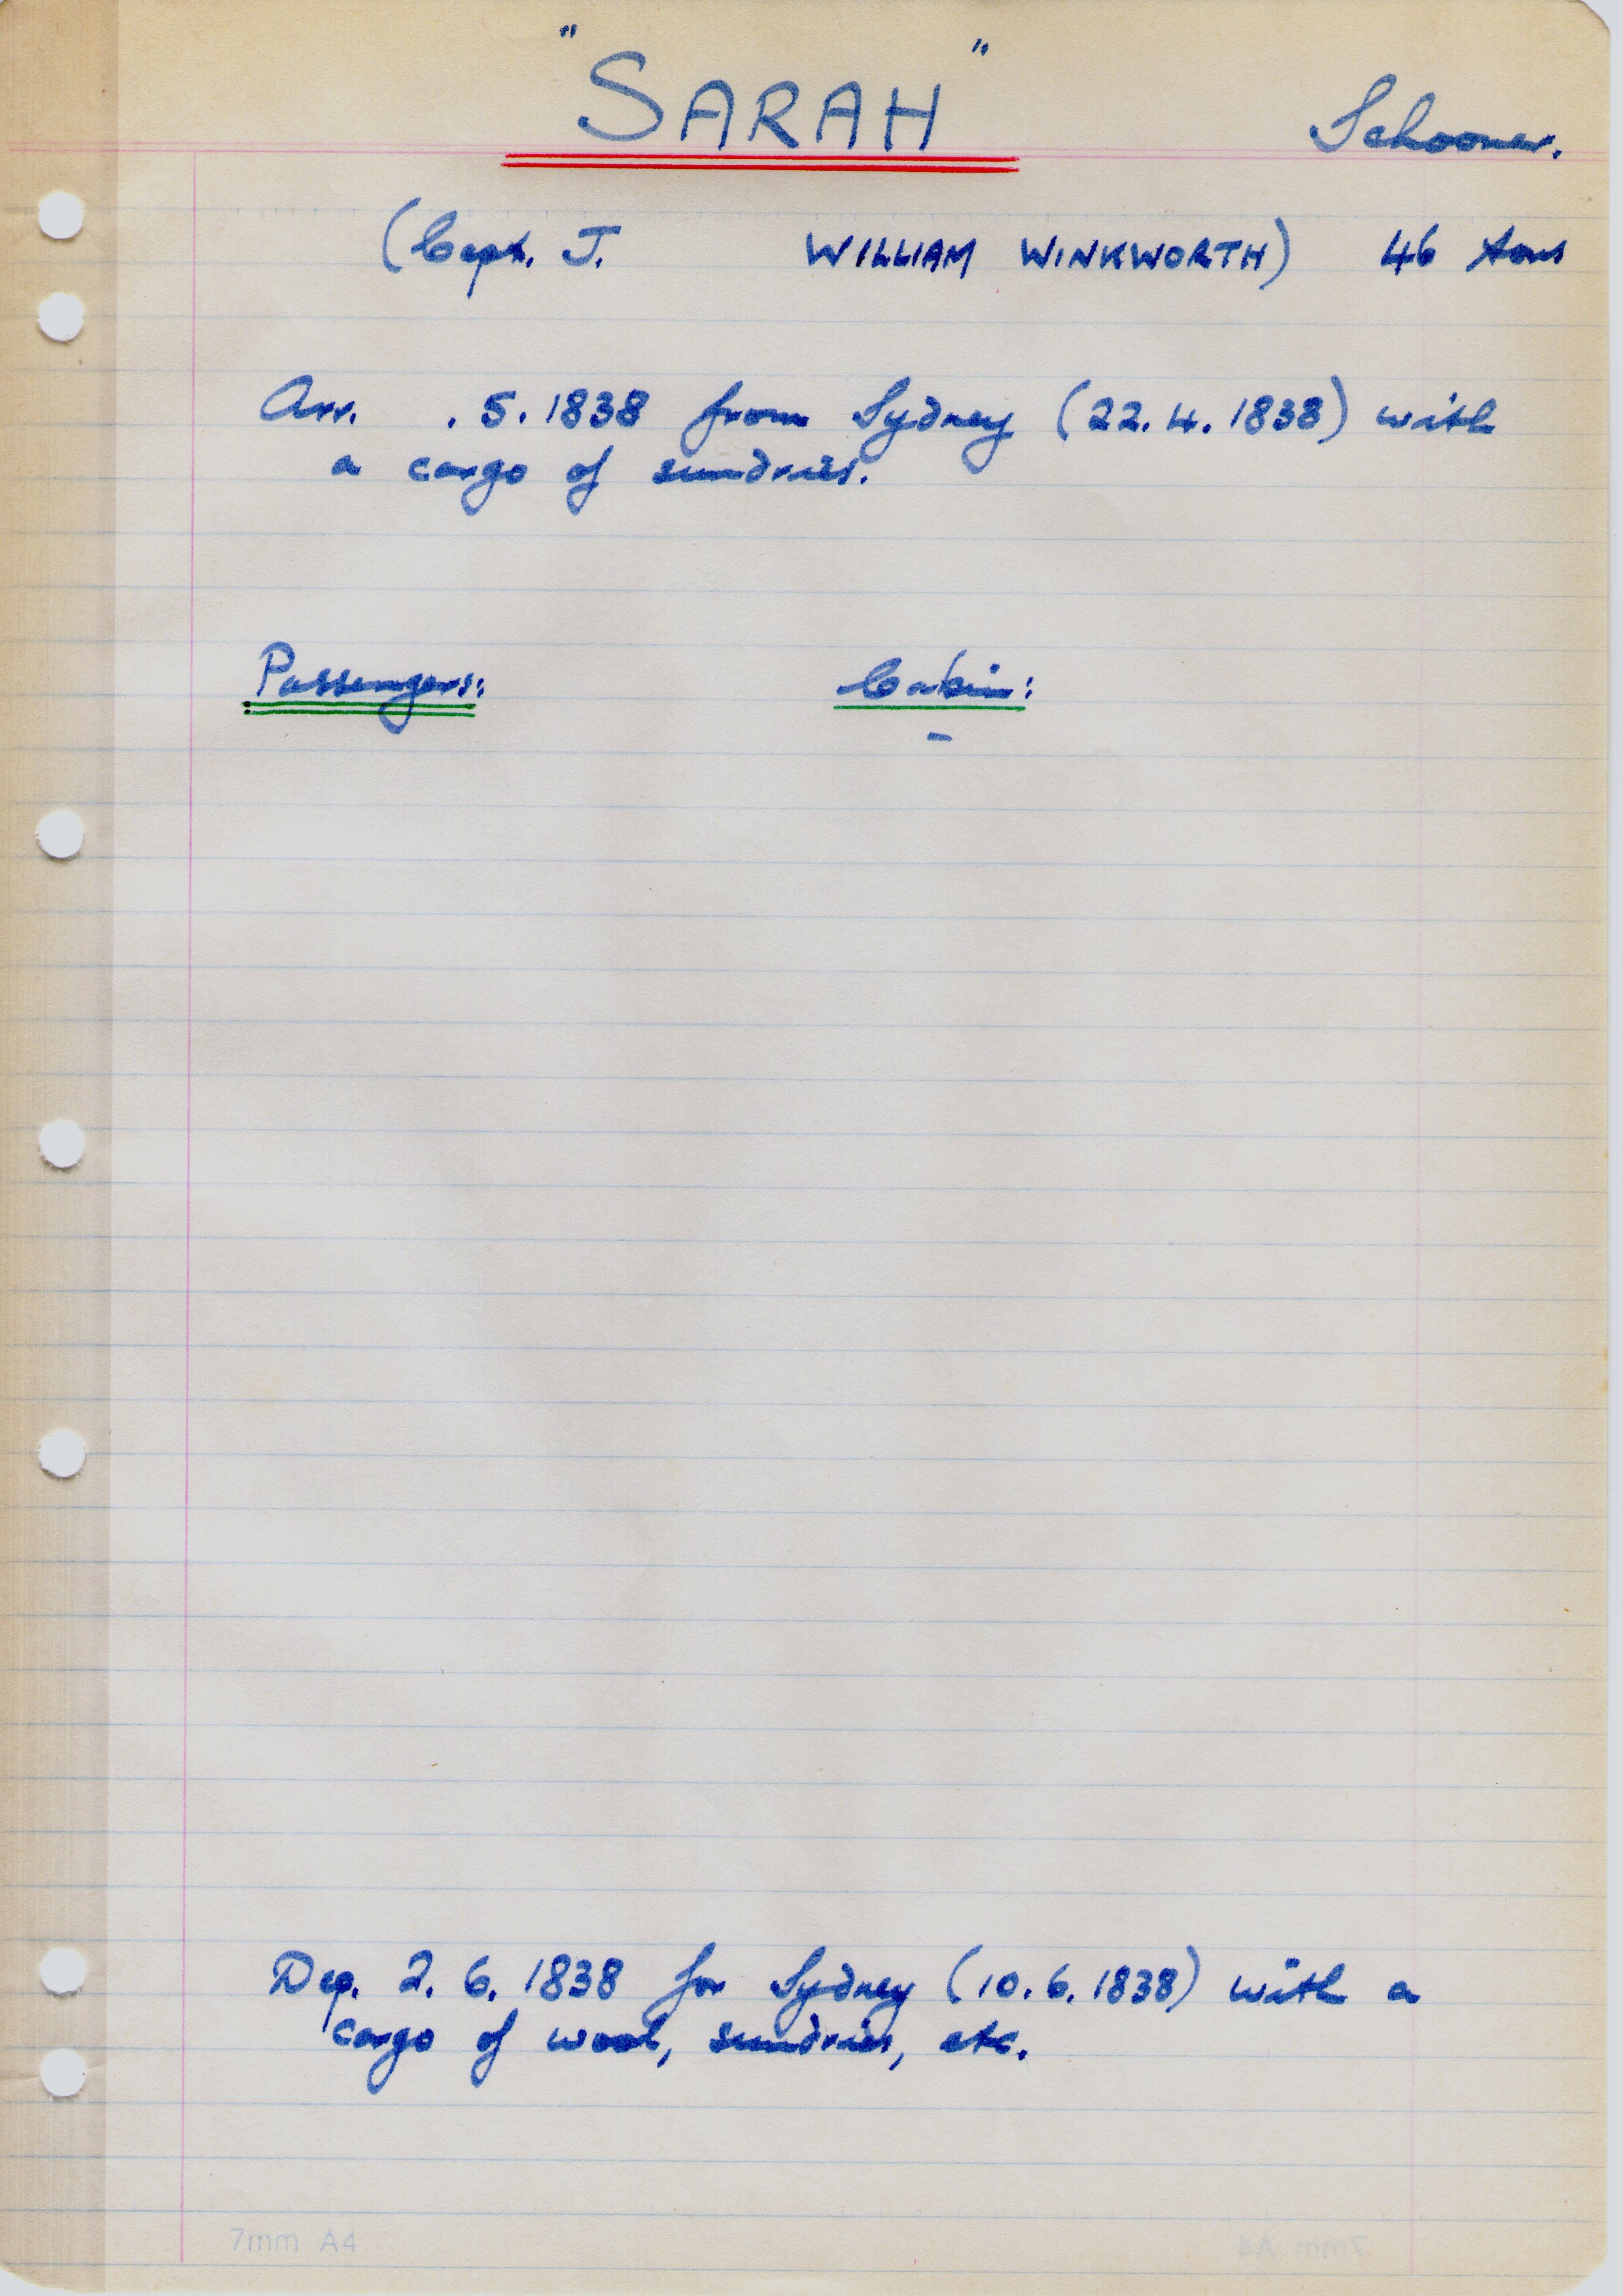 "SARAH" Schooner.
(Capt. J. WILLIAM WINKWORTH) 46 tons
Arr. .5.1838 from Sydney (22.4.1838) with
a cargo of sundries.
Passengers: Cabin:
-
Dep. 2.6.1838 for Sydney (10.6.1838) with a
cargo of wool, sundries, etc.
7mm A4
7mm A4